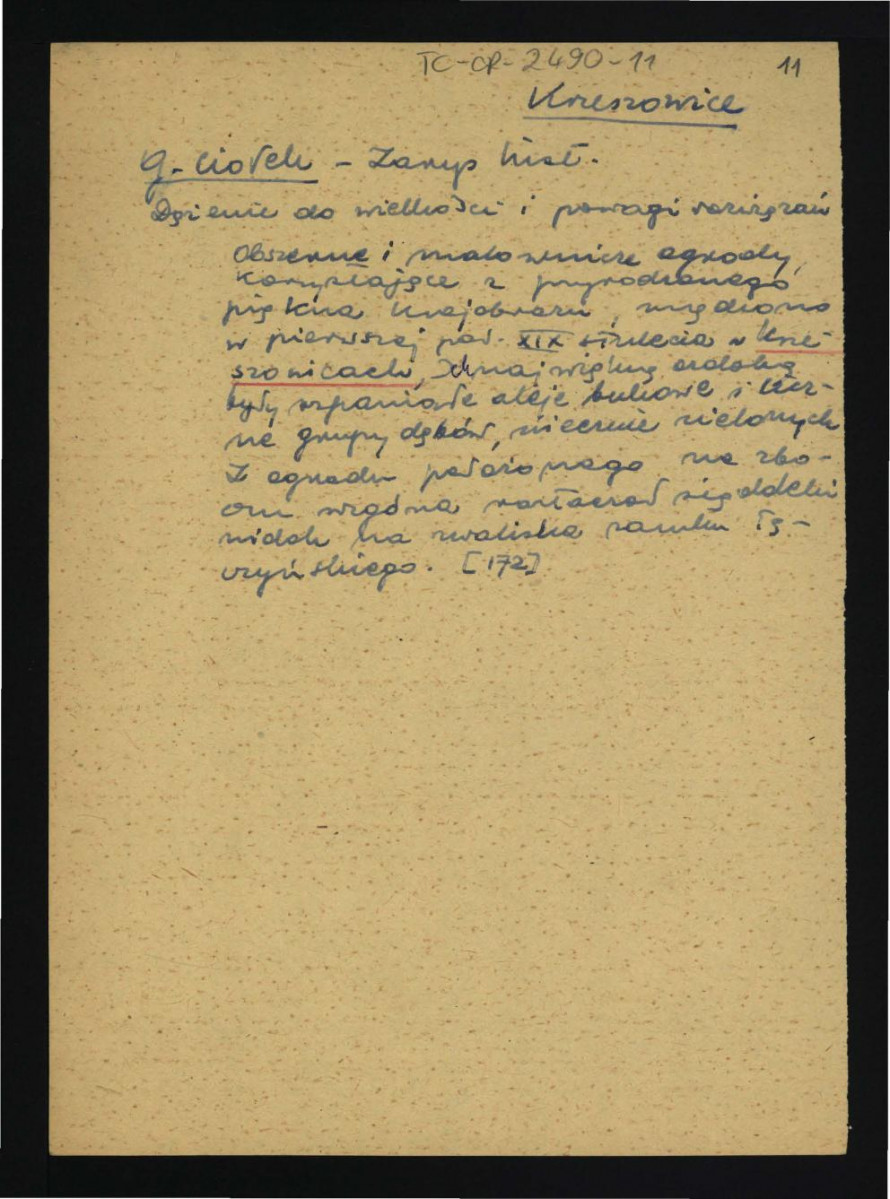 TC-CR-2490-11 11
Krzeszowice
G. Ciołek - Zarys hist.
Dążenie do wielkości i powagi rozwiązań
Obszerne i malownicze ogrody,
korzystające z przyrodzonego
piękna krajobrazu, urządzono
w pierwszej poł. XIX stulecia w Krze-
szowicach, Ich największą ozdobą
były wspaniałe aleje bukowe i licz-
ne grupy dębów, wiecznie zielonych
Z ogrodu położonego na zbo-
czu wzgórza roztaczał się daleki
widok na zwaliska zamku Tę-
czyńskiego. [172]